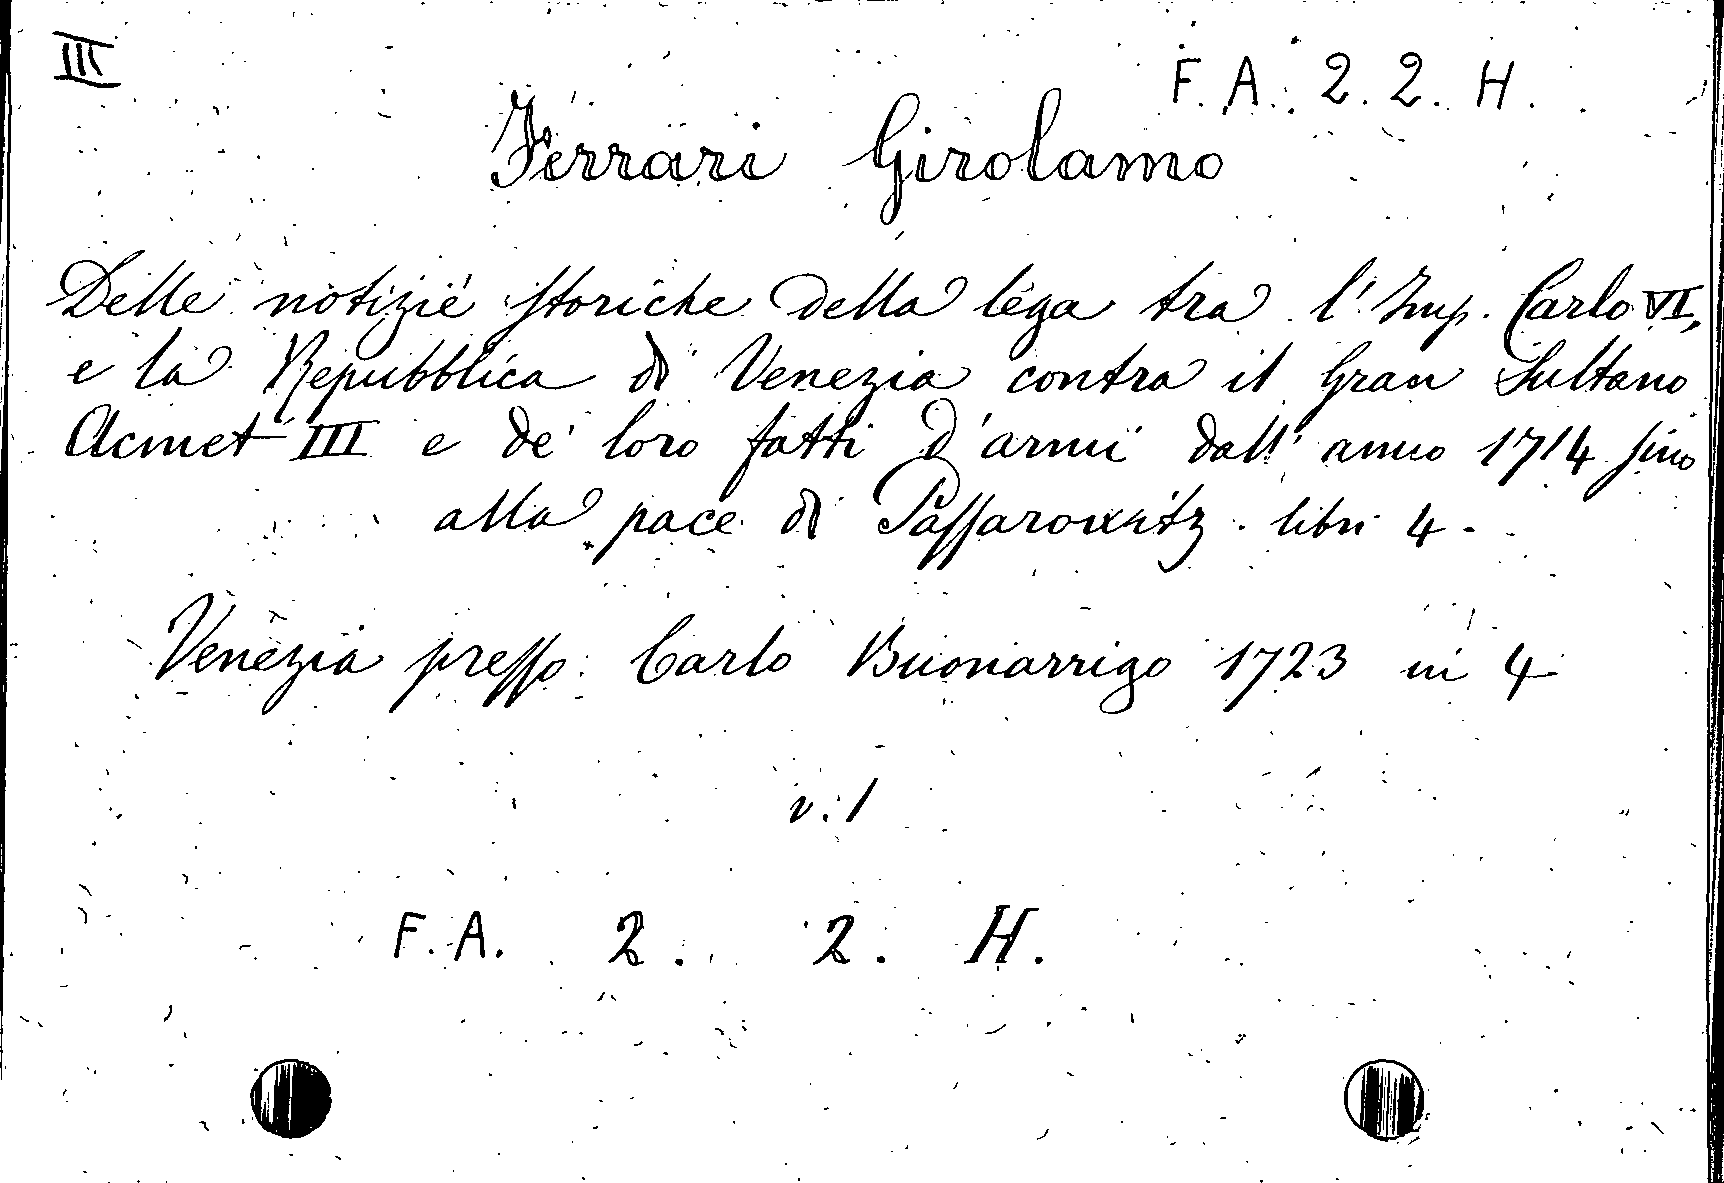 III
F. A. 2. 2. H.
Ferrari Girolamo
Delle notizie storiche della lega tra l'Imp. Carlo VI,
e la Repubblica di Venezia contra il Gran Sultano
Acmet III e de' loro fatti d'armi dall'anno 1714 sino
alla pace di Passarowitz. libri 4.
Venezia presso Carlo Buonarrigo 1723 in 4
v. 1
F. A. 2. 2. H.